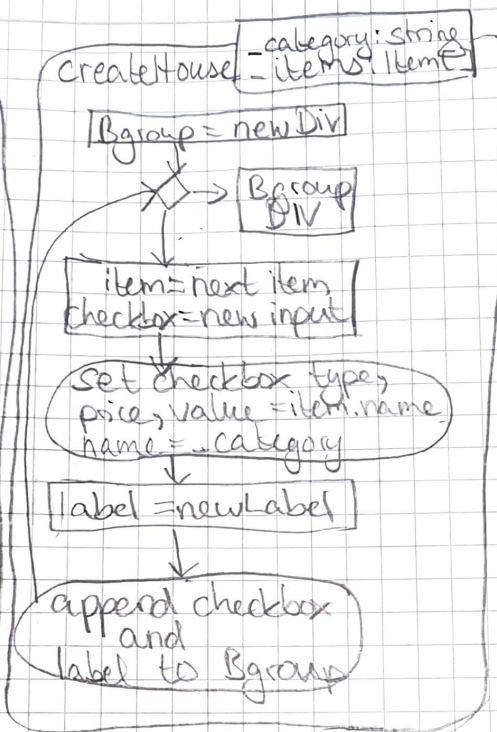 _category: string
createHouse
_items: Item[]
Bgroup = new Div
Bgroup
DIV
item = next item
checkbox = new input
set checkbox type,
price, value = item.name
name = _category
label = new Label
append checkbox
and
label to Bgroup